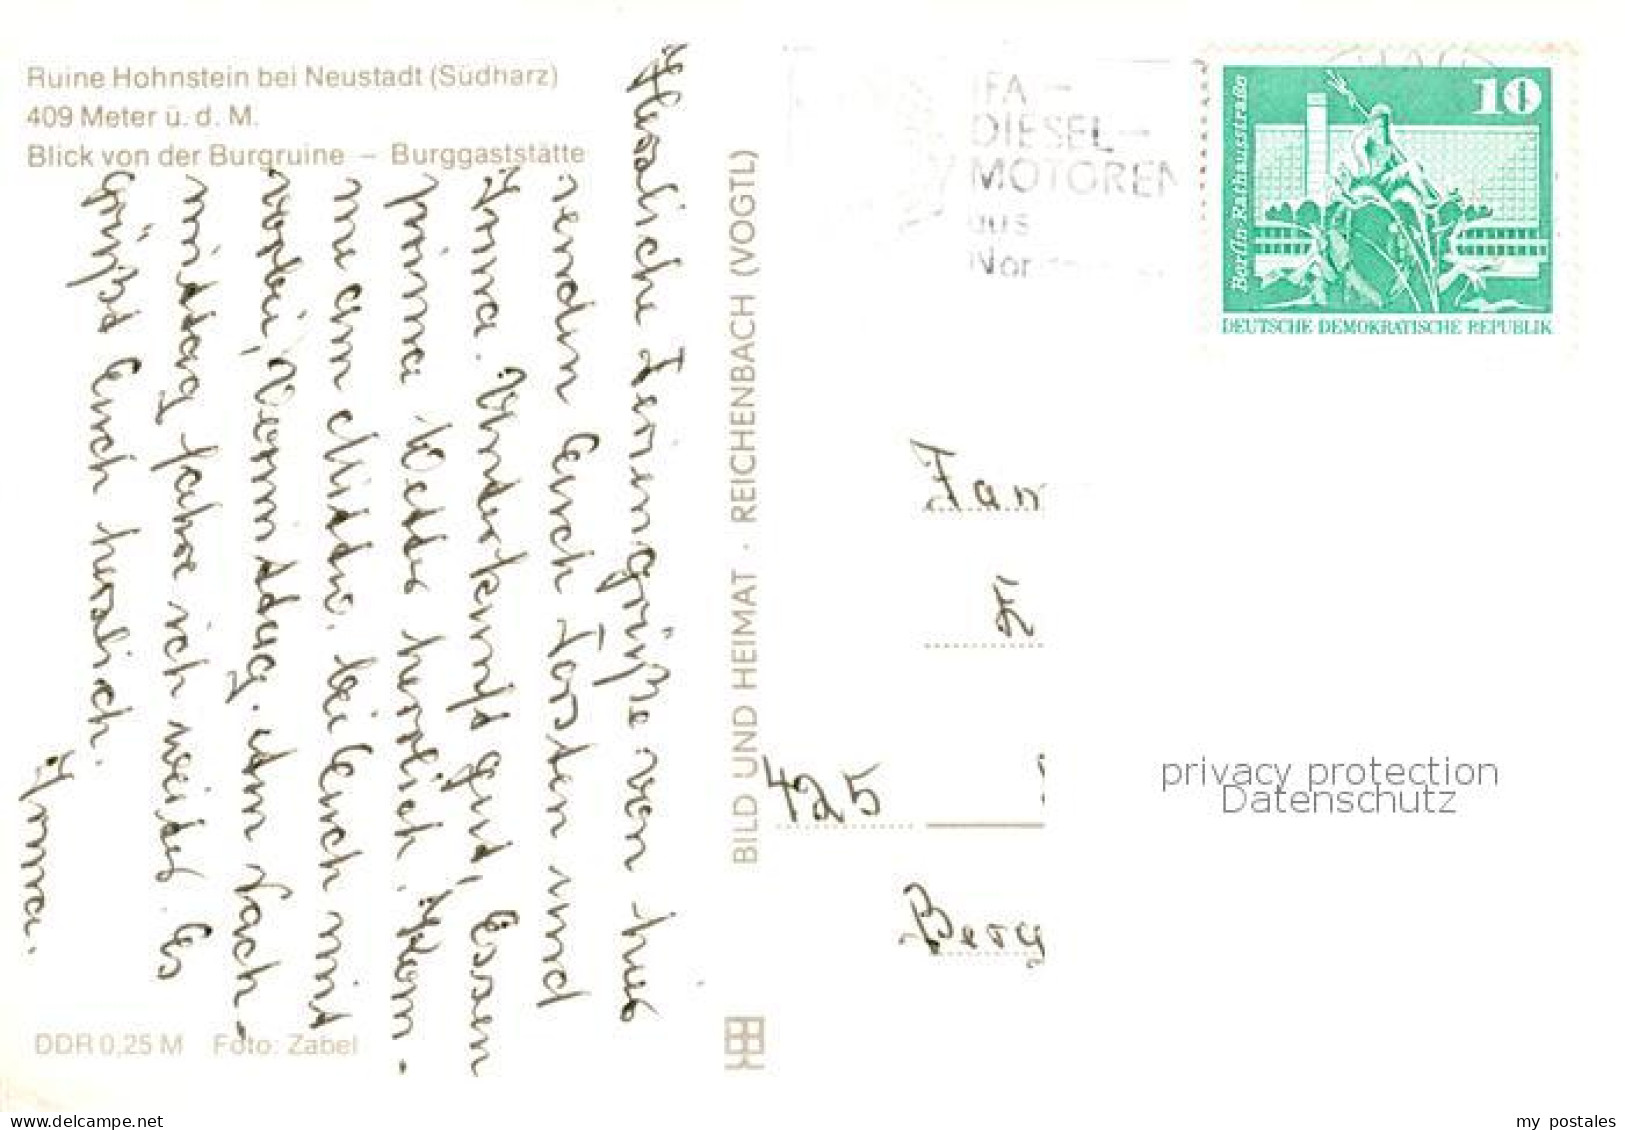 Ruine Hohnstein bei Neustadt (Südharz)
409 Meter ü. d. M.
Blick von der Burgruine – Burggaststätte
Herzliche Feriengrüße von hier
senden Euch Torsten und
Hanna. Unterkunft gut, Essen
prima Wetter herrlich. Kom-
me am Mittw. bei Euch mit
vorbei, Vormittag. Am Nach-
mittag fahre ich weiter. Es
grüßt Euch herzlich.
Hanna.
DDR 0,25 M Foto: Zabel
BILD UND HEIMAT · REICHENBACH (VOGTL)
IFA –
DIESEL –
MOTOREN
aus
Nor
Berlin-Rathausstraße
10
DEUTSCHE DEMOKRATISCHE REPUBLIK
Fam
425
Berg
privacy protection
Datenschutz
delcampe.net
my_postales